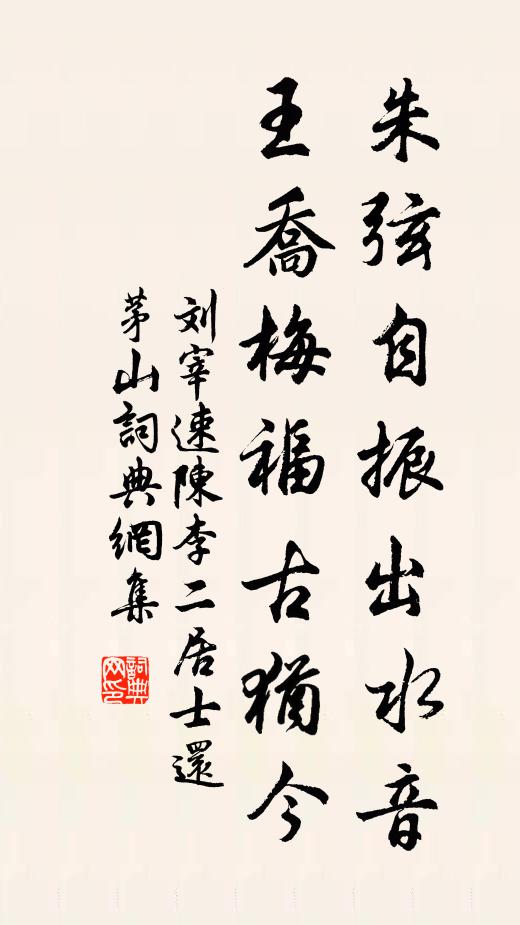 朱弦自振出水音
王喬梅福古猶今
刘宰速陳李二居士還
茅山詞典網集
詞典网印